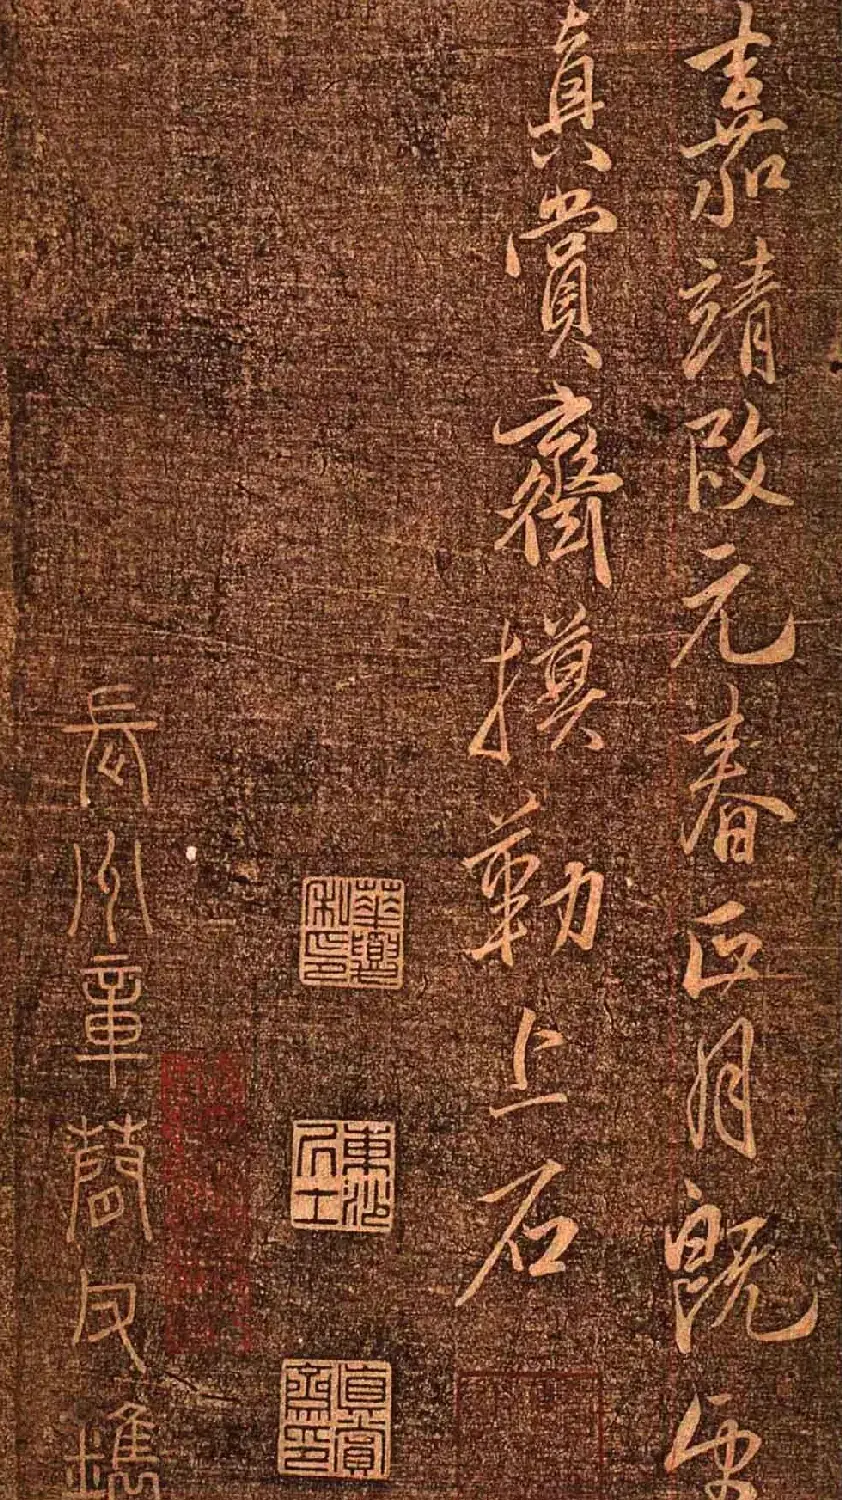 嘉靖改元春正月既望
真賞齋摸勒上石
華夏私印
東沙居士
真賞齋印
長洲章簡父鐫